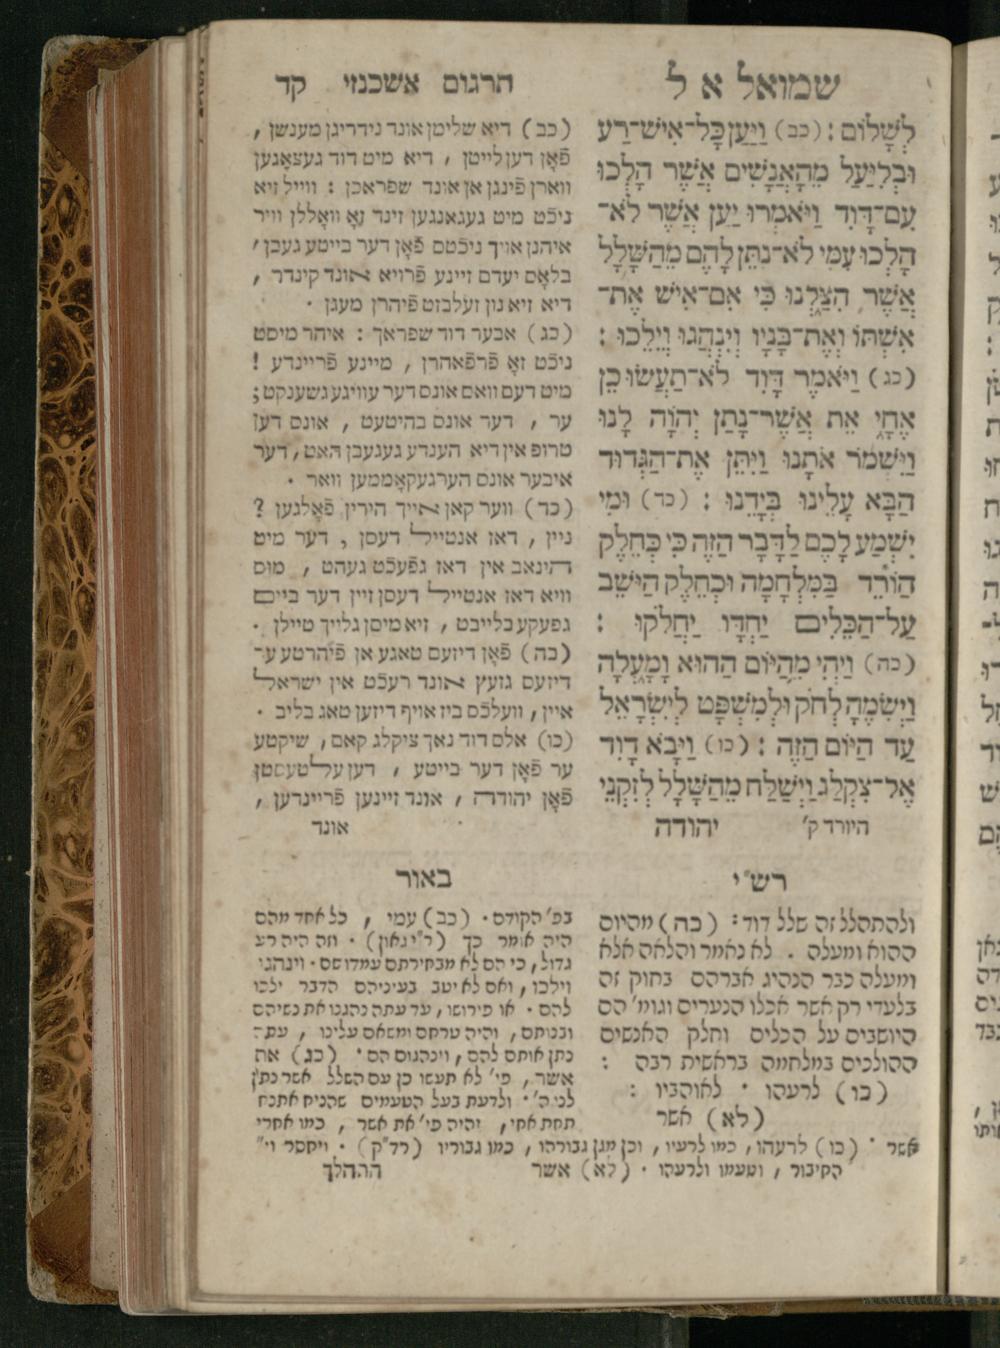 שמואל א ל
לְשָׁלוֹם׃ (כב) וַיַּעַן כָּל־אִישׁ־רָע
וּבְלִיַּעַל מֵהָאֲנָשִׁים אֲשֶׁר הָלְכוּ
עִם־דָּוִד וַיֹּאמְרוּ יַעַן אֲשֶׁר לֹא־
הָלְכוּ עִמִּי לֹא־נִתֵּן לָהֶם מֵהַשָּׁלָל
אֲשֶׁר הִצַּלְנוּ כִּי אִם־אִישׁ אֶת־
אִשְׁתּוֹ וְאֶת־בָּנָיו וְיִנְהֲגוּ וְיֵלֵכוּ׃
(כג) וַיֹּאמֶר דָּוִד לֹא־תַעֲשׂוּ כֵן
אֶחָי אֵת אֲשֶׁר־נָתַן יְהֹוָה לָנוּ
וַיִּשְׁמֹר אֹתָנוּ וַיִּתֵּן אֶת־הַגְּדוּד
הַבָּא עָלֵינוּ בְּיָדֵנוּ׃ (כד) וּמִי
יִשְׁמַע לָכֶם לַדָּבָר הַזֶּה כִּי כְּחֵלֶק
הַוֹּרֵד בַּמִּלְחָמָה וּכְחֵלֶק הַיֹּשֵׁב
עַל־הַכֵּלִים יַחְדָּו יַחֲלֹקוּ׃
(כה) וַיְהִי מֵהַיּוֹם הַהוּא וָמָעְלָה
וַיְשִׂמֶהָ לְחֹק וּלְמִשְׁפָּט לְיִשְׂרָאֵל
עַד הַיּוֹם הַזֶּה׃ (כו) וַיָּבֹא דָוִד
אֶל־צִקְלַג וַיְשַׁלַּח מֵהַשָּׁלָל לְזִקְנֵי
היורד ק' יהודה
תרגום אשכנזי קד
(כב) דיא שליטן אונד נידריגן מענשן,
פֿאָן דען לייטן, דיא מיט דוד געצאָגען
ווארן פֿינגן אן אונד שפראכן: ווייל זיא
ניכֿט מיט געגאנגען זינד זאָ וואָללן וויר
איהנן אויך ניכֿטס פֿאָן דער בייטע געבן,
בלאָס יעדם זיינע פֿרויא אונד קינדר,
דיא זיא נון זעלבזט פֿיהרן מעגן.
(כג) אבער דוד שפראך: איהר מיסט
ניכֿט זאָ פֿרפֿאהרן, מיינע פֿריינדע!
מיט דעם וואס אונס דער עוויגע געשענקט;
ער, דער אונס בהיטעט, אונס דען
טרופ אין דיא הענדע געגעבן האט, דער
איבער אונס הערגעקאָממען וואר.
(כד) ווער קאן אייך הירין פֿאָלגען?
ניין, דאז אנטייל דעסן, דער מיט
הינאב אין דאז גפֿעכֿט געהט, מוס
וויא דאז אנטייל דעסן זיין דער ביים
געפעקע בלייבט, זיא מיסן גלייך טיילן.
(כה) פֿאָן דיזעם טאגע אן פֿיהרטע ער
דיזעס גזעץ אונד רעכֿט אין ישראל
איין, וועלכֿס ביז אויף דיזען טאג בליב.
(כו) אלס דוד נאך ציקלג קאם, שיקטע
ער פֿאָן דער בייטע, דען עלטעסטן
פֿאָן יהודה, אונד זיינען פֿריינדען,
אונד
רש"י
ולהתהלל זה שלל דוד: (כה) מהיום
ההוא ומעלה. לא נאמר והלאה אלא
ומעלה כבר הנהיג אברהם בחוק זה
בלעדי רק אשר אכלו הנערים וגומ' הם
היושבים על הכלים וחלק האנשים
ההולכים במלחמה בראשית רבה:
(כו) לרעהו. לאוהביו:
(לא) אשר
באור
בפ' הקודם. (כב) עמי, כל אחד מהם
היה אומר כך (ר"י גאון). וזה היה רע
גדול, כי הם לא מבחירתם עמדו שם. וינהגו
וילכו, ואם לא יטב בעיניהם הדבר ילכו
להם. או פירושו, עד עתה נהגנו את נשיהם
ובנותם, והיה טרחם ומשאם עלינו, עתה
נתן אותם להם, וינהגום הם. (כג) את
אשר, פי' לא תעשו כן עם השלל אשר נתן
לנו ה'. ולדעת בעל הטעמים שהניח אתנח
תחת אחי, יהיה פי' את אשר, כמו אחרי
אשר. (כו) לרעהו, כמו לרעיו, וכן מגן גבורהו, כמו גבוריו (רד"ק). ויחסר וי"ו
החיבור, וטעמו ולרעהו. (לא) אשר
התהלך